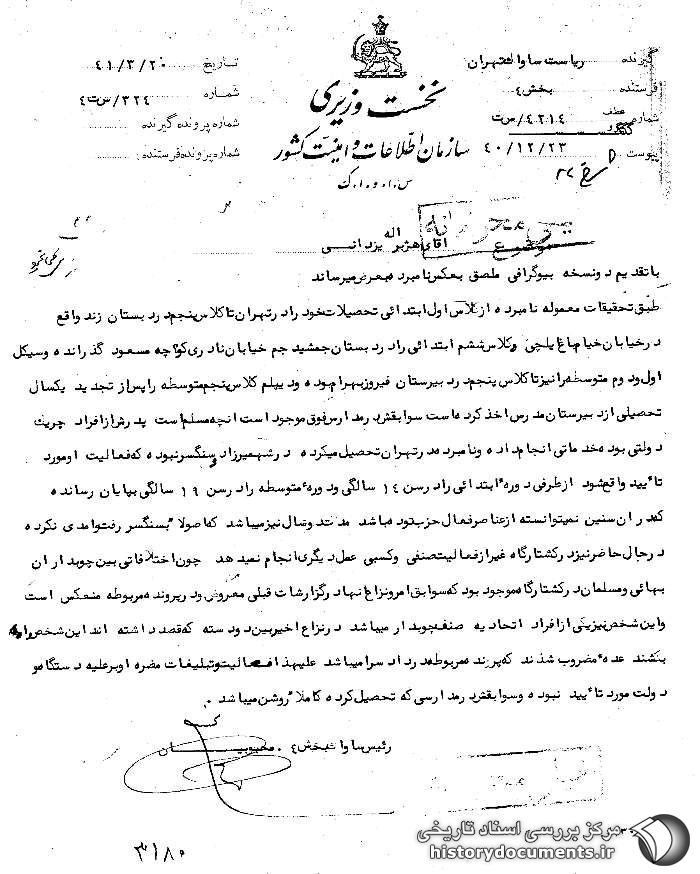 گیرنده ریاست ساواک تهران
فرستنده بخش ٤
شماره عطف ٤٢١٤/س ت
پیوست ٤٠/١٢/٢٣
نخست وزیری
سازمان اطلاعات و امنیت کشور
س.ا.و.ا.ک
تاریخ ٤١/٣/٢٠
شماره ٣٢٤/س ت ٤
شماره پرونده گیرنده
شماره پرونده فرستنده
موضوع آقای هژبر اله یزدانی
باتقدیم دونسخه بیوگرافی ملصق بعکس نامبرده بعرض میرساند
طبق تحقیقات معموله نامبرده از کلاس اول ابتدائی تحصیلات خود را در تهران تا کلاس پنجم در دبستان زند واقع
در خیابان خیام باغ ایلچی و کلاس ششم ابتدائی را در دبستان جمشید جم خیابان نادری کوچه مسعود گذرانده و سیکل
اول و دوم متوسطه را نیز تا کلاس پنجم در دبیرستان فیروز بهرام بوده و دیپلم کلاس پنجم متوسطه را پس از تجدید یکسال
تحصیلی از دبیرستان مدرس اخذ کرده است سوابقش در مدارس فوق موجود است آنچه مسلم است پدرش از افراد چریک
دولتی بوده خدماتی انجام داده و نامبرده در تهران تحصیل میکرده در شهمیرزاد و سنگسر نبوده که فعالیت او مورد
تأیید واقع شود از طرفی دوره ابتدائی را در سن ١٤ سالگی و دوره متوسطه را در سن ١٩ سالگی بپایان رسانده
که در آن سنین نمیتوانسته از عناصر فعال حزب توده باشد مدت دو سال نیز میباشد که اصولا بسنگسر رفت و آمدی نکرده
در حال حاضر نیز در کشتارگاه غیر از فعالیت صنفی و کسبی عمل دیگری انجام نمیدهد چون اختلافاتی بین چوبداران
بهائی و مسلمان در کشتارگاه موجود بود که سوابق امر و نزاع آنها در گزارشات قبلی معروض و در پرونده مربوطه منعکس است
و این شخص نیز یکی از افراد اتحادیه صنف چوبدار میباشد در نزاع اخیر بین دو دسته که قصد داشته اند این شخص را
بکشند عده مضروب شدند که پرونده مربوطه در دادسرا میباشد علیهذا فعالیت و تبلیغات مضره او بر علیه دستگاه و
دولت مورد تأیید نبوده و سوابقش در مدارسی که تحصیل کرده کاملا روشن میباشد .
رئیس ساواک بخش ٤ . محبوبیان
٣١٨٥
مرکز بررسی اسناد تاریخی
historydocuments.ir